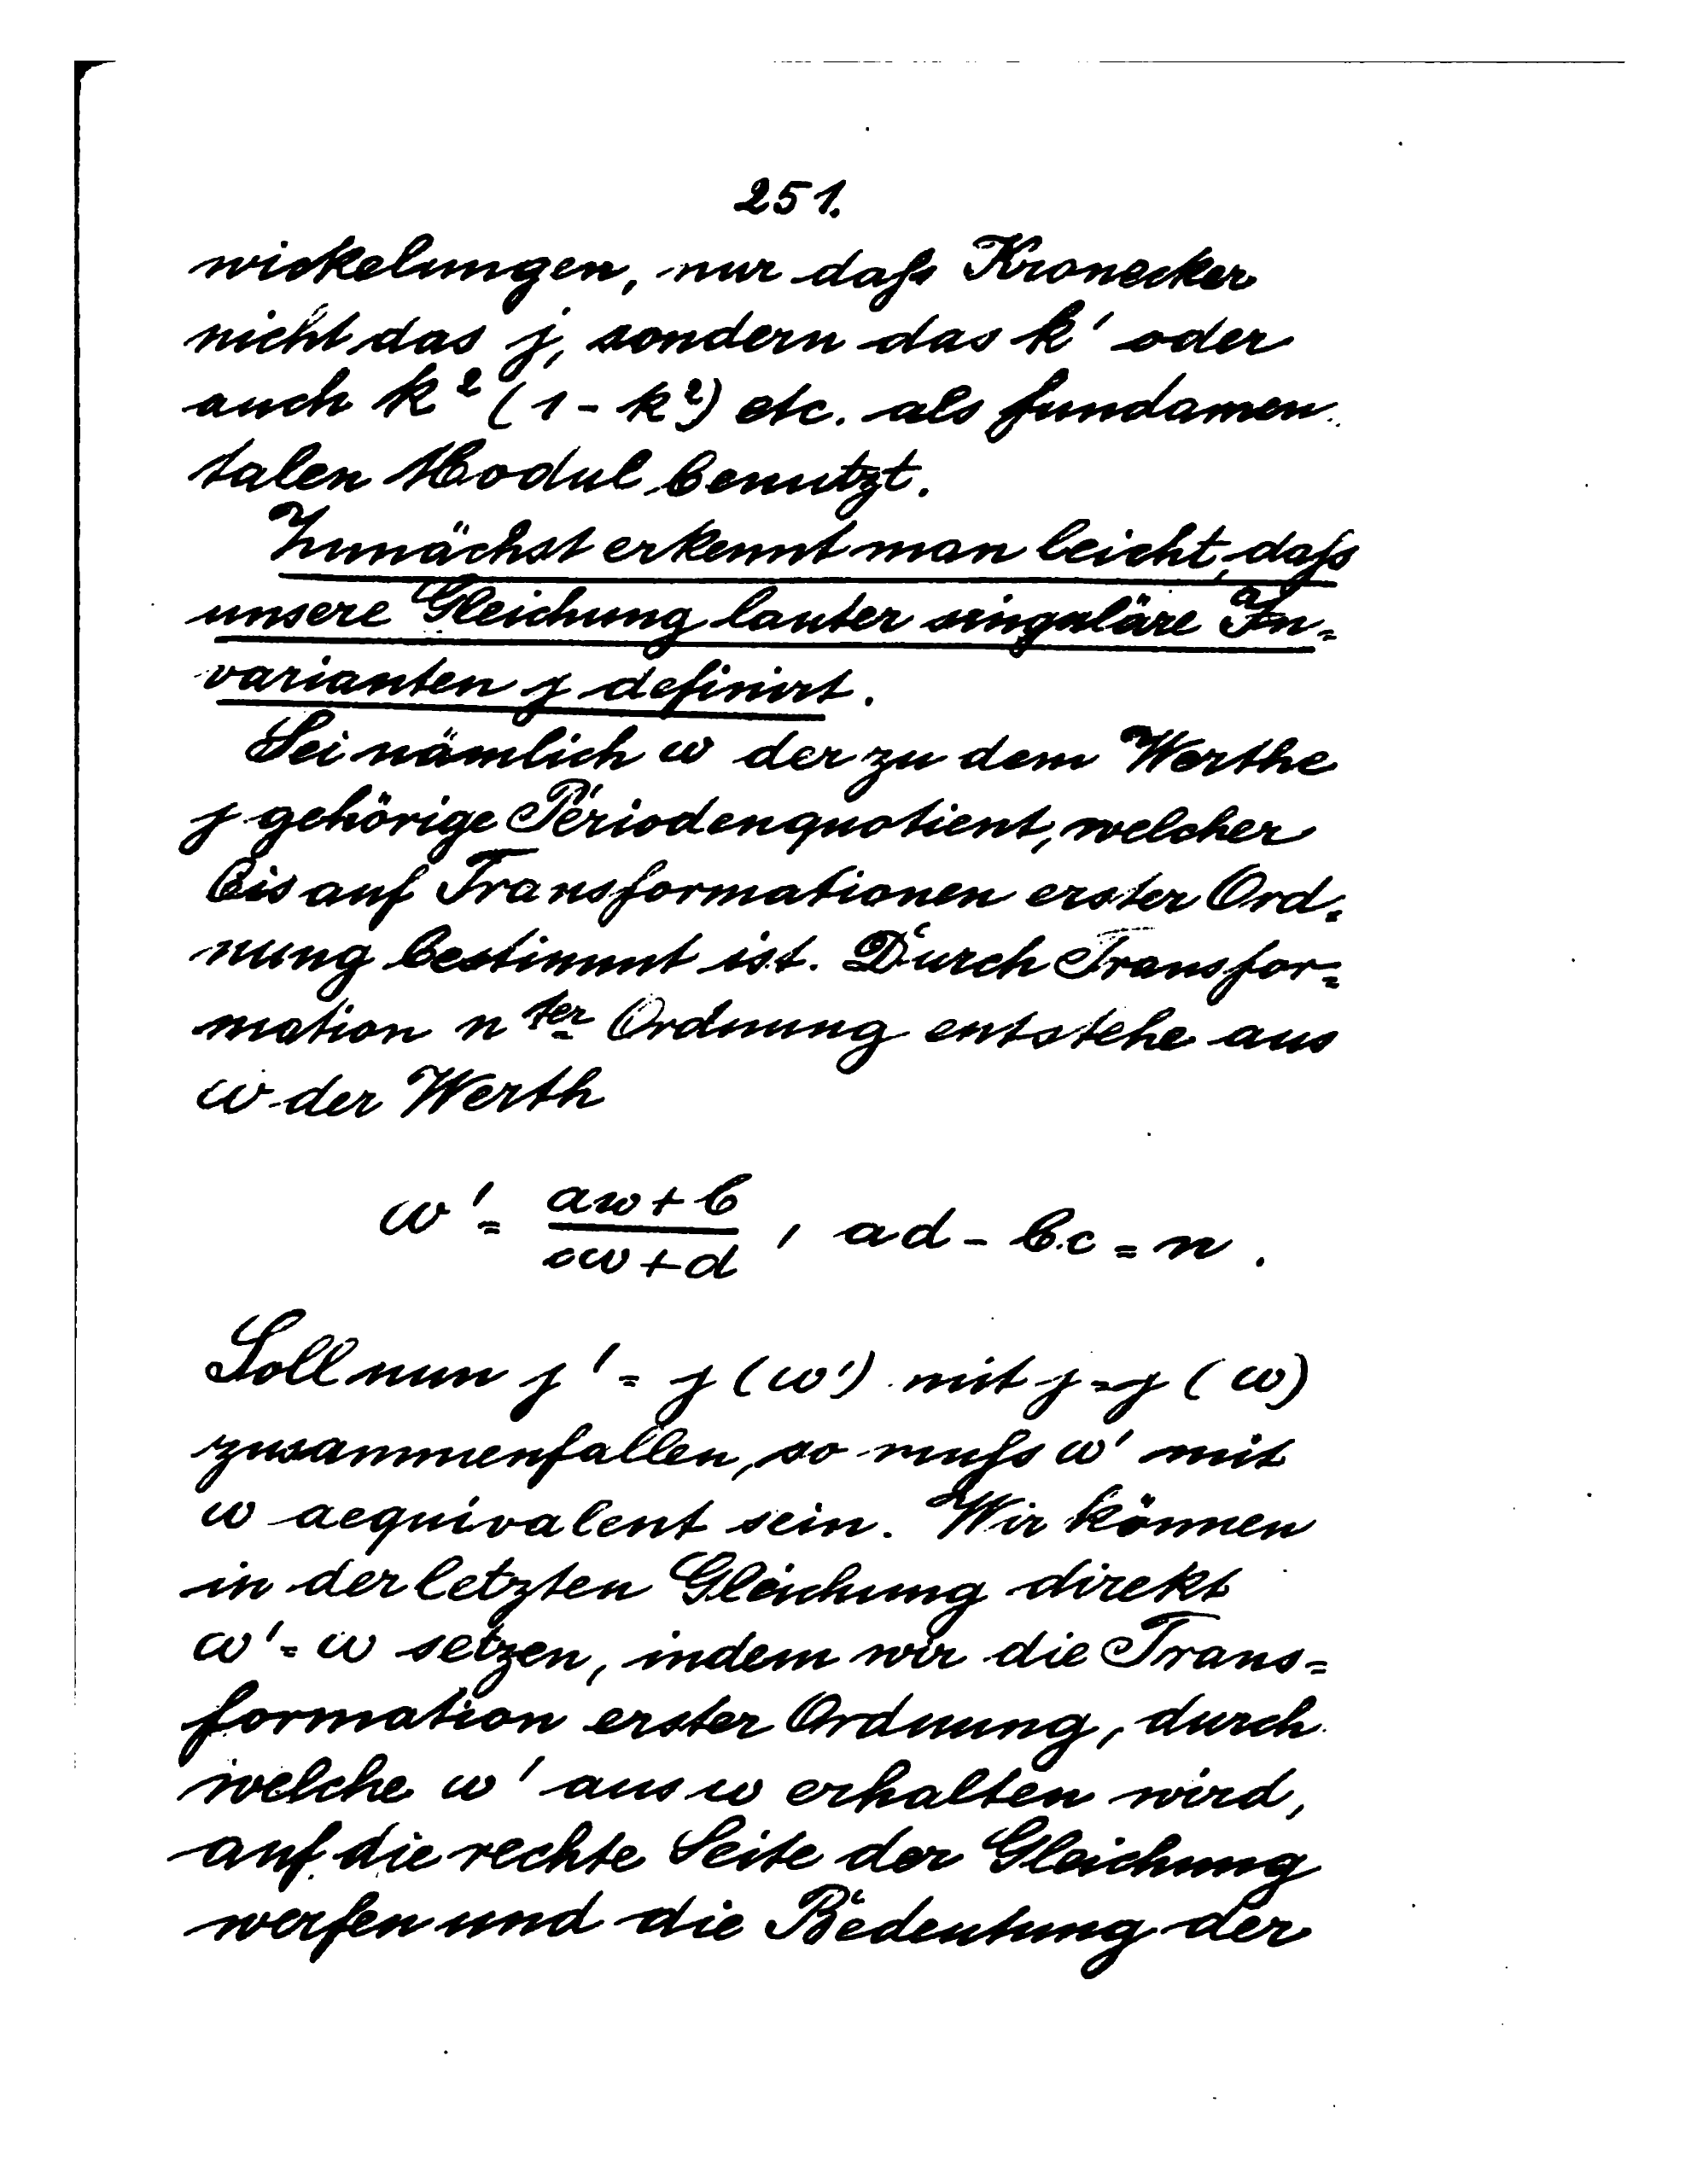 251.
wickelungen, nur daſs Kronecker
nicht das j, sondern das k' oder
auch k² (1 - k²) etc. als fundamen
talen Modul benutzt.
Zunächst erkennt man leicht, daſs
unsere Gleichung lauter singuläre In=
varianten j definirt.
Sei nämlich ω der zu dem Werthe
j gehörige Periodenquotient, welcher
bis auf Transformationen erster Ord=
nung bestimmt ist. Durch Transfor=
mation n ter Ordnung entstehe aus
ω der Werth
ω' = (aω + b)/(cω + d), ad - b.c = n.
Soll nun j' = j (ω') mit j = j (ω)
zusammenfallen, so muſs ω' mit
ω aequivalent sein. Wir können
in der letzten Gleichung direkt
ω' = ω setzen, indem wir die Trans=
formation erster Ordnung, durch
welche ω' aus ω erhalten wird,
auf die rechte Seite der Gleichung
werfen und die Bedeutung der